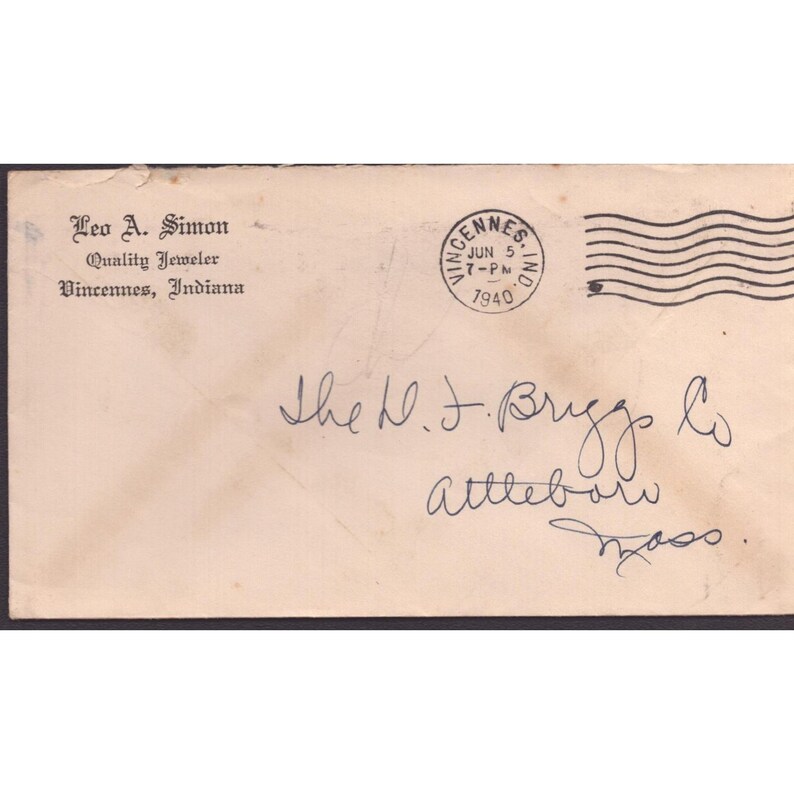 Leo A. Simon
Quality Jeweler
Vincennes, Indiana
VINCENNES, IND.
JUN 5
7-PM
1940
The D. F. Briggs Co
Attleboro
Mass.